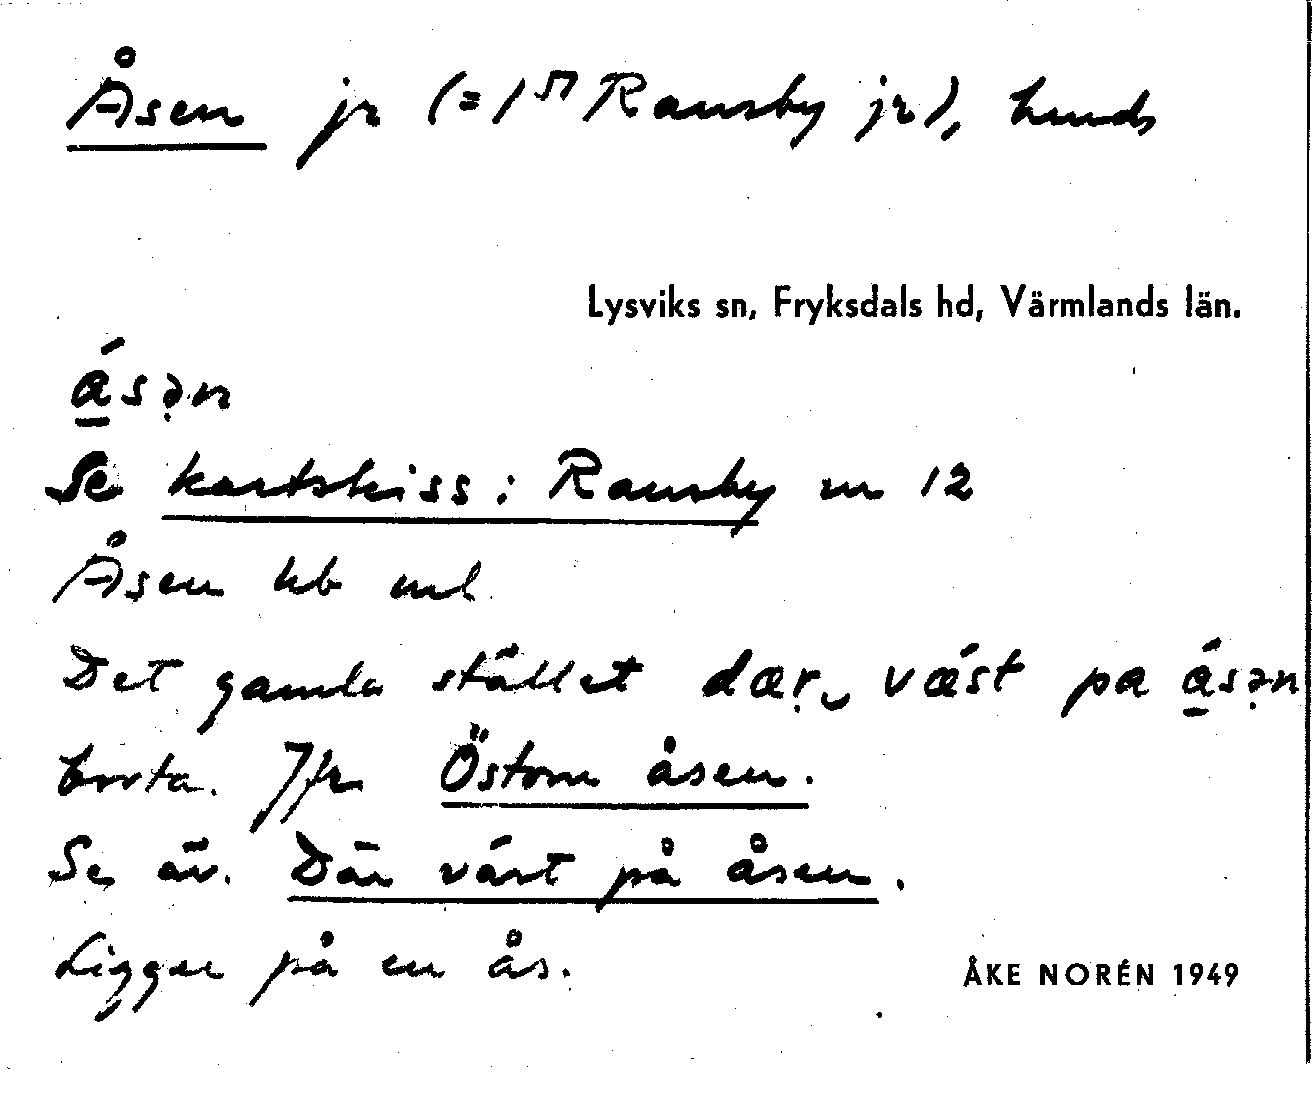 Åsen jr (= 1⁵⁷ Ransby jr), hmds
Lysviks sn, Fryksdals hd, Värmlands län.
ásə̣n
Se kartskiss: Ransby nr 12
Åsen hb ml
Det gamla stället dæṛ vǽst pa ásə̣n
borta. Jfr Östom åsen.
Se äv. Där väst på åsen.
Ligger på en ås.
ÅKE NORÉN 1949